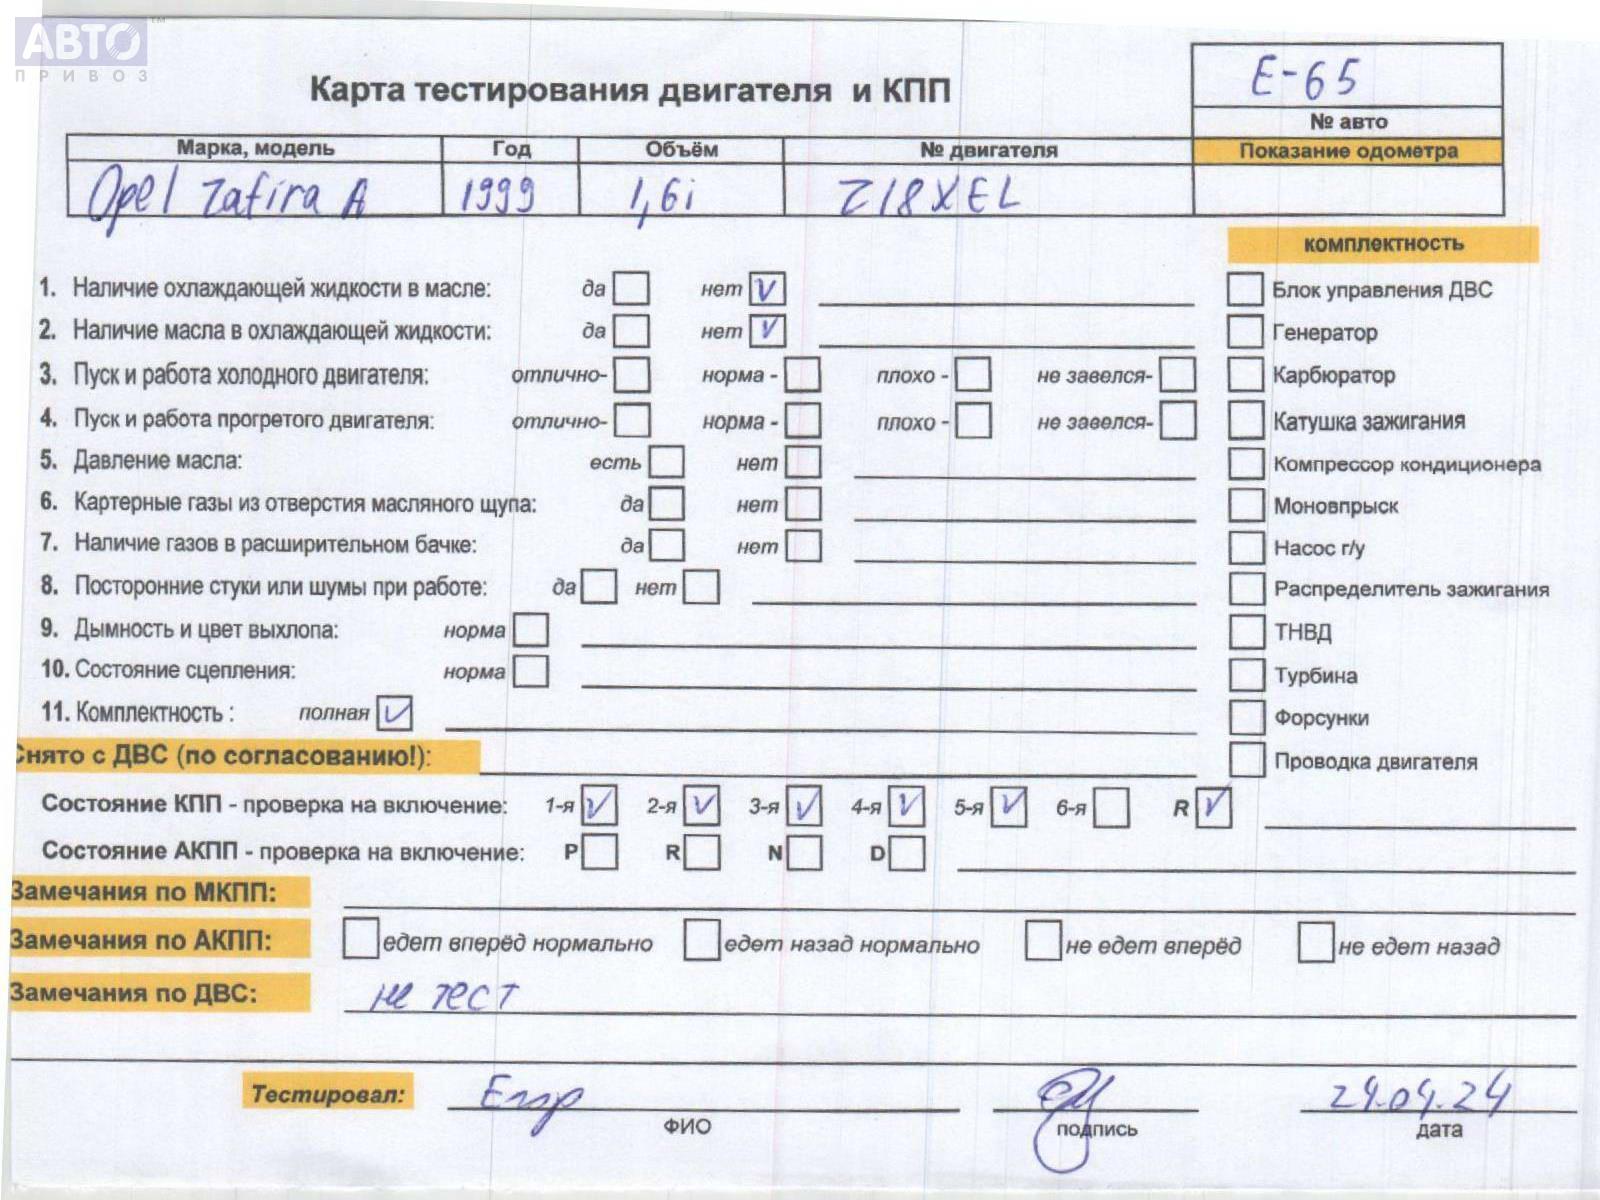 АВТО™
ПРИВОЗ
Карта тестирования двигателя и КПП
E-65
№ авто
Марка, модель Год Объём № двигателя Показание одометра
Opel Zafira A 1999 1,6i Z18XEL
комплектность
1. Наличие охлаждающей жидкости в масле: да нет V
Блок управления ДВС
2. Наличие масла в охлаждающей жидкости: да нет V
Генератор
3. Пуск и работа холодного двигателя: отлично- норма - плохо - не завелся-
Карбюратор
4. Пуск и работа прогретого двигателя: отлично- норма - плохо - не завелся-
Катушка зажигания
5. Давление масла: есть нет
Компрессор кондиционера
6. Картерные газы из отверстия масляного щупа: да нет
Моновпрыск
7. Наличие газов в расширительном бачке: да нет
Насос г/у
8. Посторонние стуки или шумы при работе: да нет
Распределитель зажигания
9. Дымность и цвет выхлопа: норма
ТНВД
10. Состояние сцепления: норма
Турбина
11. Комплектность : полная V
Форсунки
Снято с ДВС (по согласованию!):
Проводка двигателя
Состояние КПП - проверка на включение: 1-я V 2-я V 3-я V 4-я V 5-я V 6-я R V
Состояние АКПП - проверка на включение: P R N D
Замечания по МКПП:
Замечания по АКПП: едет вперёд нормально едет назад нормально не едет вперёд не едет назад
Замечания по ДВС: не тест
Тестировал: Егор 24.04.24
ФИО подпись дата